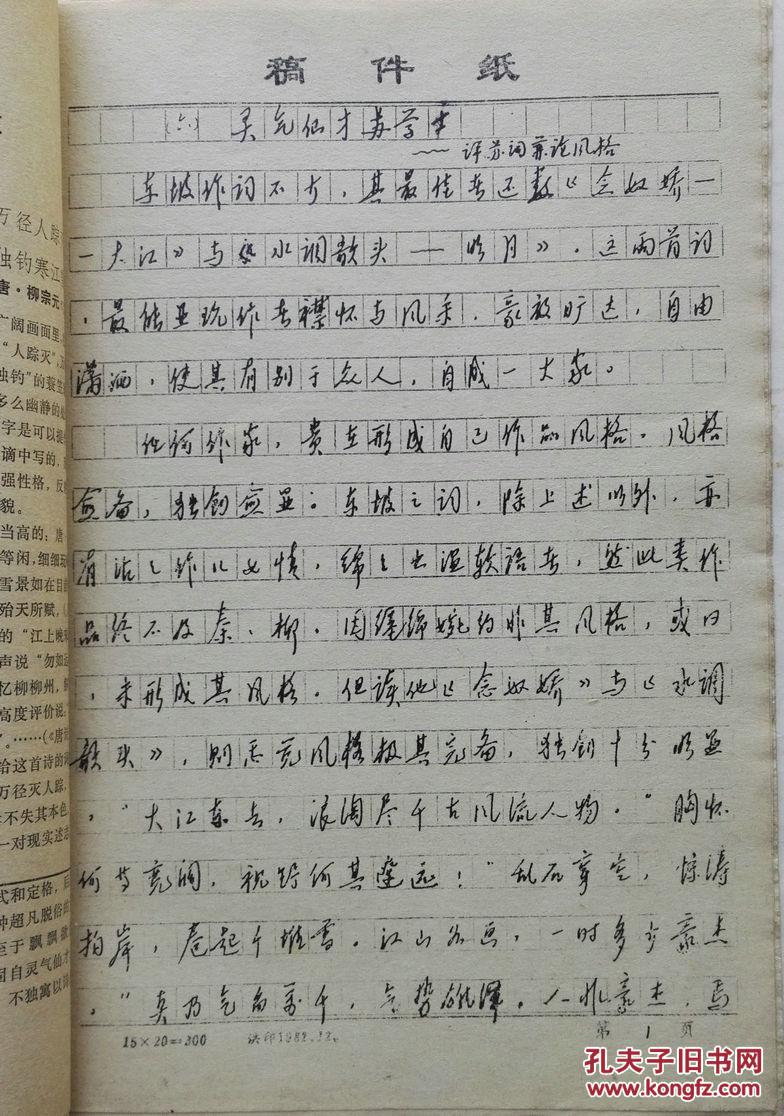 万径人踪
独钓寒江
唐·柳宗元
广阔画面里
“人踪灭”，
独钓”的蓑笠
多么幽静的
字是可以
谪中写的，
强性格，反
貌。
当高的；唐
等闲，细细玩
雪景如在目
殆天所赋，
的“江上晚
声说“勿如
忆柳柳州，
高度评价说。
”。……（《唐
给这首诗的
万径灭人踪，
不失其本色
一对现实述志
式和定格，
种超凡脱俗
至于飘飘
因自灵气仙才
不独寓以诗
稿件纸
（六）灵气仙才苏学士
——评苏词兼论风格
东坡作词不少，其最佳者还数《念奴娇—
—大江》与《水调歌头——明月》。这两首词
，最能显现作者襟怀与风采，豪放旷达，自由
潇洒，使其有别于众人，自成一大家。
任何作家，贵在形成自己作品风格。风格
愈备，独创愈显。东坡之词，除上述以外，亦
有沾之作儿女情，绵之出温软语者，然此类作
品终不及秦、柳，因缠绵婉约非其风格，或曰
，未形成其风格。但读他《念奴娇》与《水调
歌头》，则感觉风格极其完备，独创十分明显
，“大江东去，浪淘尽千古风流人物。”胸怀
何等亮阔，视野何其遥远！“乱石穿空，惊涛
拍岸，卷起千堆雪。江山如画，一时多少豪杰
。”真乃气象万千，气势雄浑。人非豪杰，焉
15×20=300 洪印1982.12。 第1页
孔夫子旧书网
www.kongfz.com